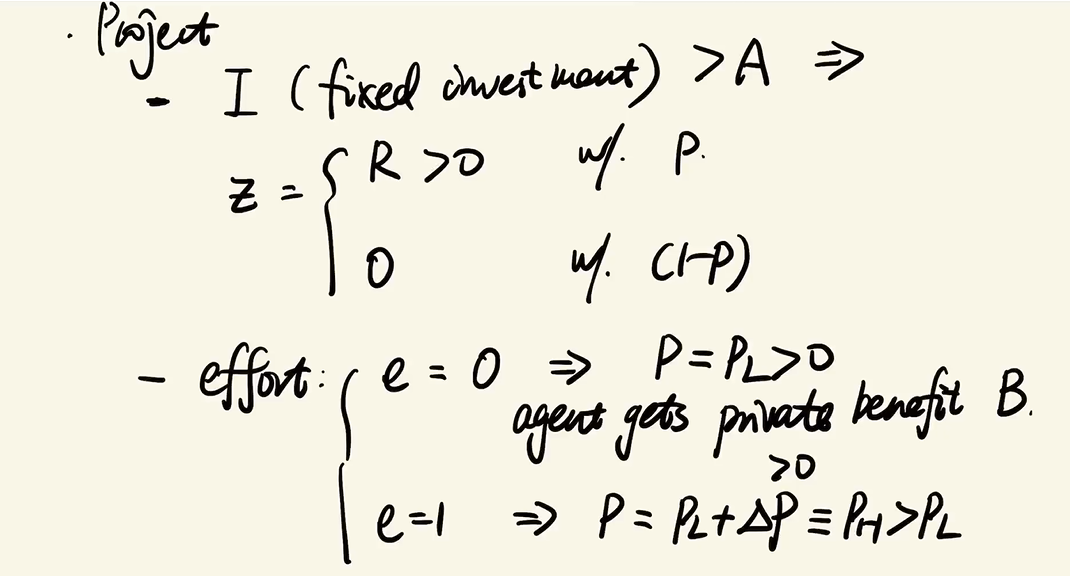 · Project
- I (fixed investment) > A ⇒
z = { R > 0 w/. P.
0 w/. (1-P)
- effort: { e = 0 ⇒ P = P_L > 0
agent gets private benefit B.
>0
e=1 ⇒ P = P_L + ΔP ≡ P_H > P_L